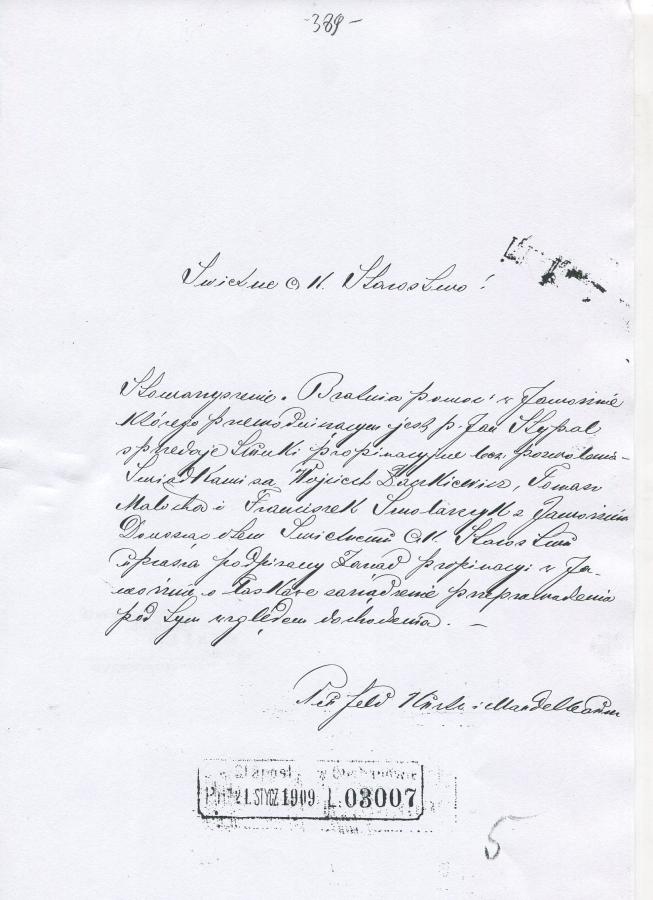 -389-
Świetne C. K. Starostwo!
Stowarzyszenie "Bratnia pomoc" w Jaworznie
którego przewodniczącym jest p. Jan Stypał
sprzedaje trunki propinacyjne bez pozwolenia
Świadkami są Wojciech Zackiewicz, Tomasz
Malocha i Franciszek Smolarczyk z Jaworzna
Donosząc o tem Świetnemu C. K. Starostwu
uprasza podpisany Zarząd propinacyi w Ja-
worznie o łaskawe zarządzenie przeprowadzenia
pod tym względem dochodzenia. —
i Mandelbaum
21. STYCZ 1909 L. 03007
5